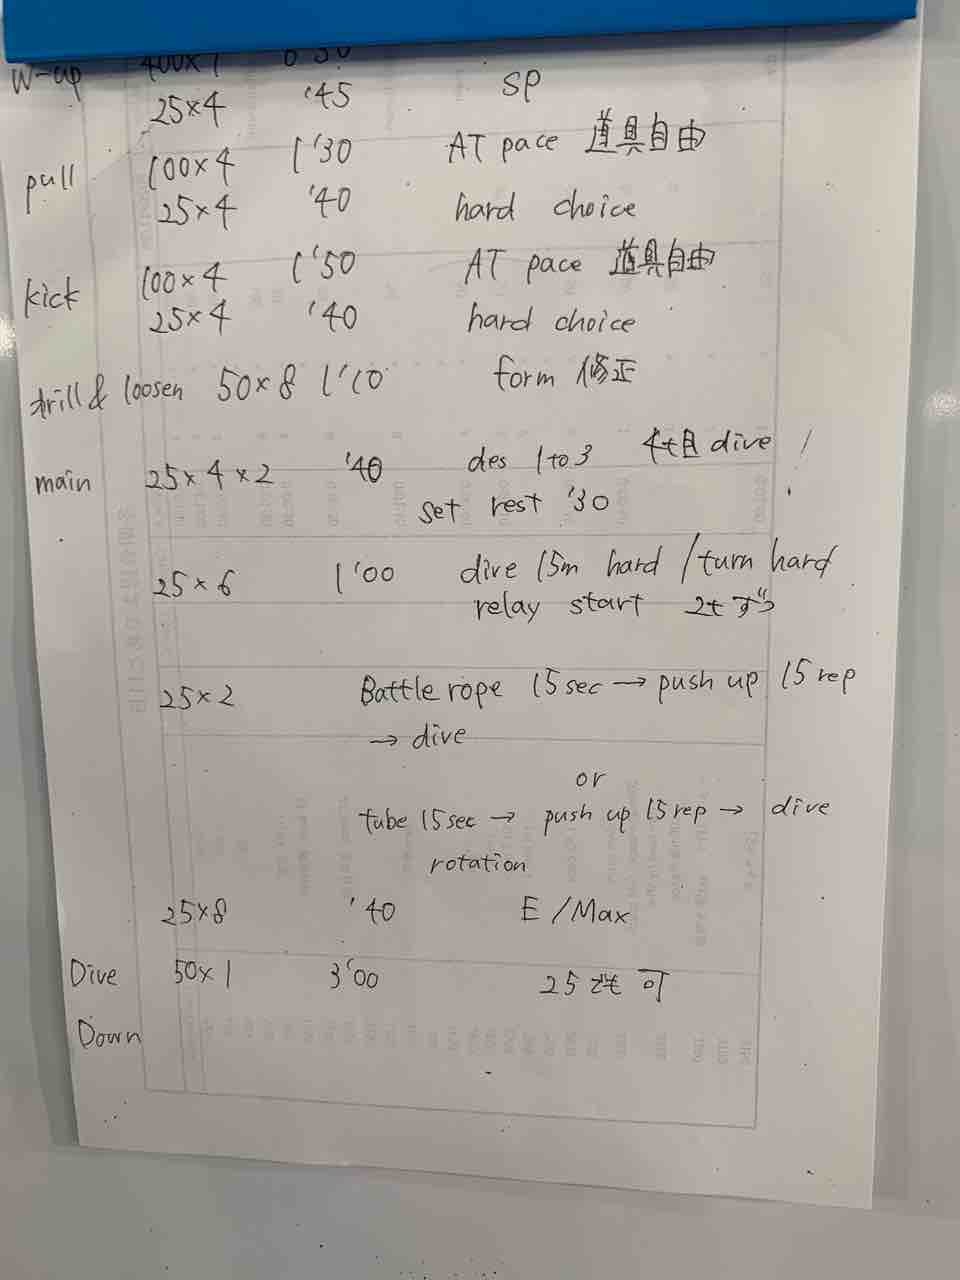 W-up 400×1
25×4 '45 SP
pull 100×4 1'30 AT pace 道具自由
25×4 '40 hard choice
kick 100×4 1'50 AT pace 道具自由
25×4 '40 hard choice
drill & loosen 50×8 1'10 form 修正
main 25×4×2 '40 des 1to3 4t目 dive !
set rest '30
25×6 1'00 dive 15m hard /turn hard
relay start 2tずつ
25×2 Battle rope 15sec → push up 15rep
→ dive
or
tube 15sec → push up 15rep → dive
rotation
25×8 '40 E /Max
Dive 50×1 3'00 25でも可
Down